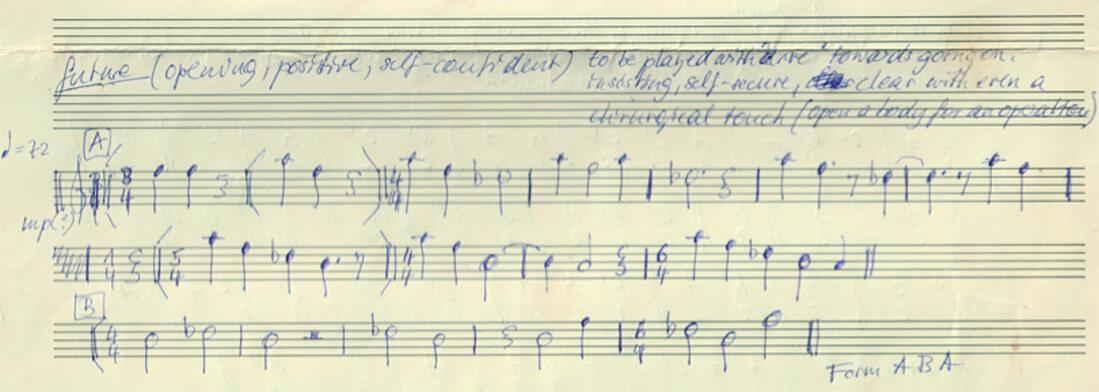 future (opening, positive, self-confident) to be played with "drive" towards going on.
insisting, self-secure, clear with even a
chirurgical touch (open a body for an operation)
♩=72 A
3/4 4/4
mp(?)
1/4 5/4 4/4 6/4
B
4/4 6/4
Form A B A